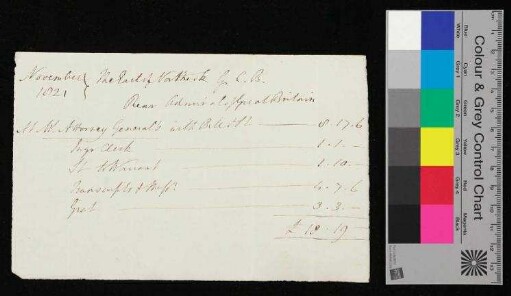 November } The Earl of Northesk G. C. B.
1821
Rear Admiral of Great Britain
At Mr. Attorney General's with Bill &c — 8.17.6
Ingr. Clerk — 1.1.—
to Warrant — 1.10.—
Transcripts & — 4.7.6
Grat — 3.3.—
£ 18.19.—
Colour & Grey Control Chart
Blue
Cyan
Green
Yellow
Red
Magenta
White
Grey 1
Grey 2
Grey 3
Grey 4
Black